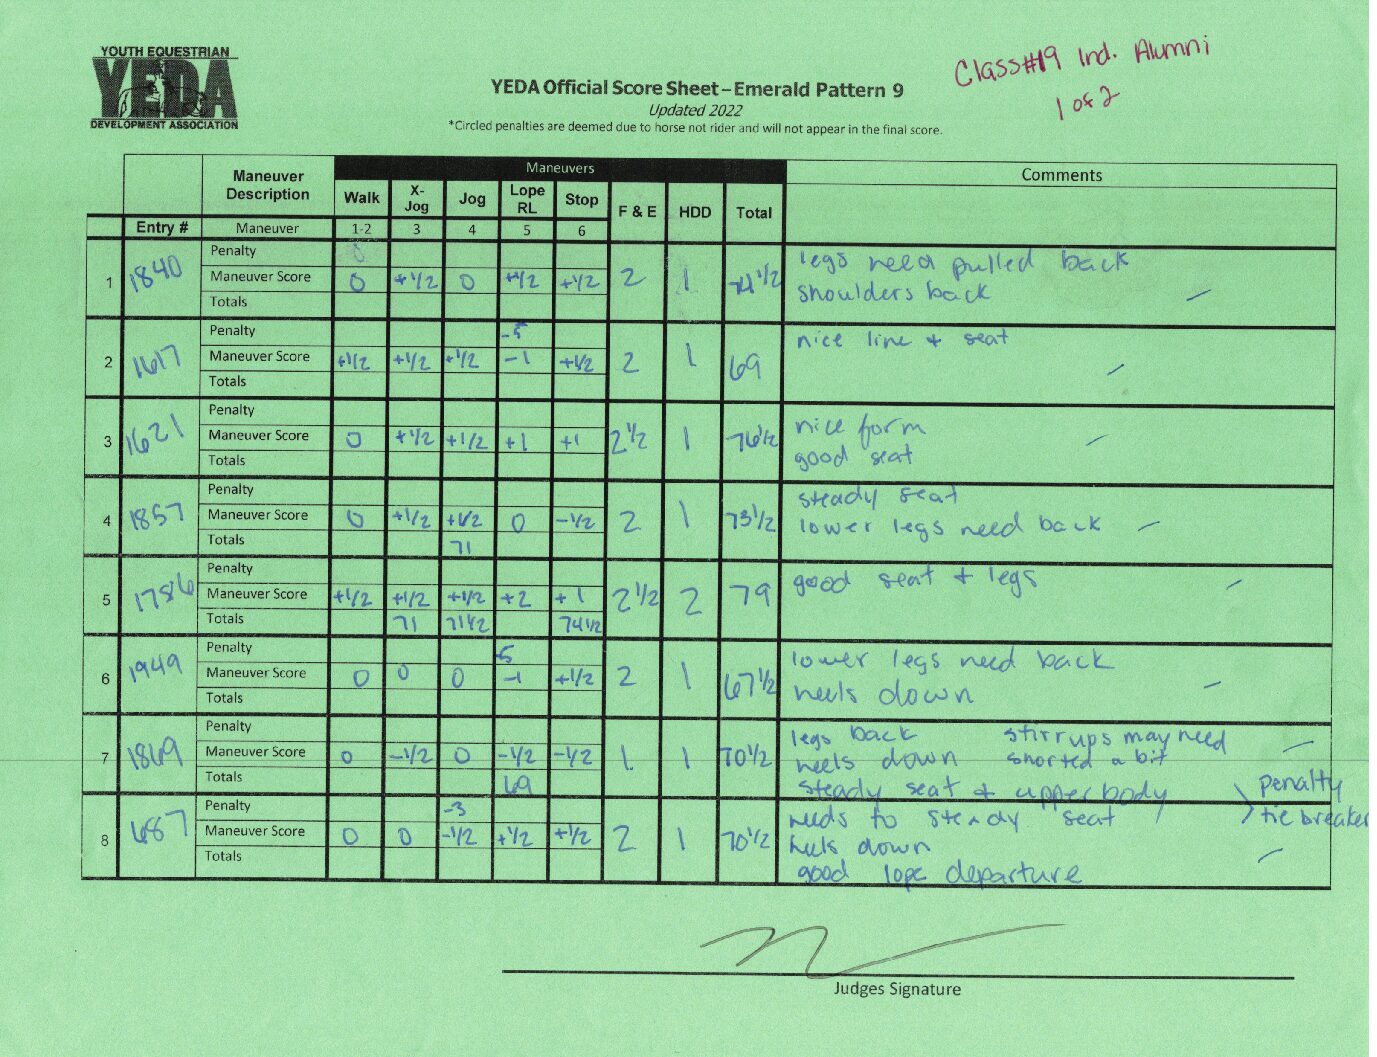 YOUTH EQUESTRIAN
YEDA
DEVELOPMENT ASSOCIATION
Class#19 Ind. Alumni
1 of 2
YEDA Official Score Sheet – Emerald Pattern 9
Updated 2022
*Circled penalties are deemed due to horse not rider and will not appear in the final score.
Maneuver Description Maneuvers Comments
Walk X-Jog Jog Lope RL Stop F & E HDD Total
Entry # Maneuver 1-2 3 4 5 6
1 1840
Penalty 0
Maneuver Score 0 +1/2 0 +1/2 +1/2 2 1 74 1/2
Totals
legs need pulled back
shoulders back –
2 1617
Penalty -5
Maneuver Score +1/2 +1/2 +1/2 -1 +1/2 2 1 69
Totals
nice line + seat –
3 1621
Penalty
Maneuver Score 0 +1/2 +1/2 +1 +1 2 1/2 1 76 1/2
Totals
nice form –
good seat
4 1857
Penalty
Maneuver Score 0 +1/2 +1/2 0 -1/2 2 1 73 1/2
Totals 71
steady seat
lower legs need back –
5 1786
Penalty
Maneuver Score +1/2 +1/2 +1/2 +2 +1 2 1/2 2 79
Totals 71 71 1/2 74 1/2
good seat + legs –
6 1949
Penalty -5
Maneuver Score 0 0 0 -1 +1/2 2 1 67 1/2
Totals
lower legs need back
heels down –
7 1869
Penalty
Maneuver Score 0 -1/2 0 -1/2 -1/2 1 1 70 1/2
Totals 69
legs back stirrups may need
heels down shorted a bit –
steady seat + upper body
penalty
tie breaker
8 687
Penalty -3
Maneuver Score 0 0 -1/2 +1/2 +1/2 2 1 70 1/2
Totals
needs to steady seat
heels down –
good lope departure
Judges Signature